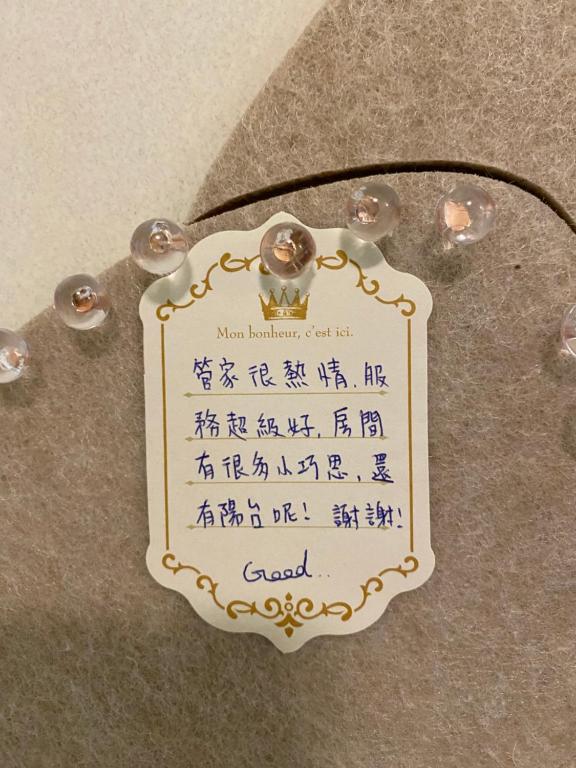 Mon bonheur, c'est ici.
管家很熱情.服
務超級好,房間
有很多小巧思,還
有陽台呢! 謝謝!
Good..